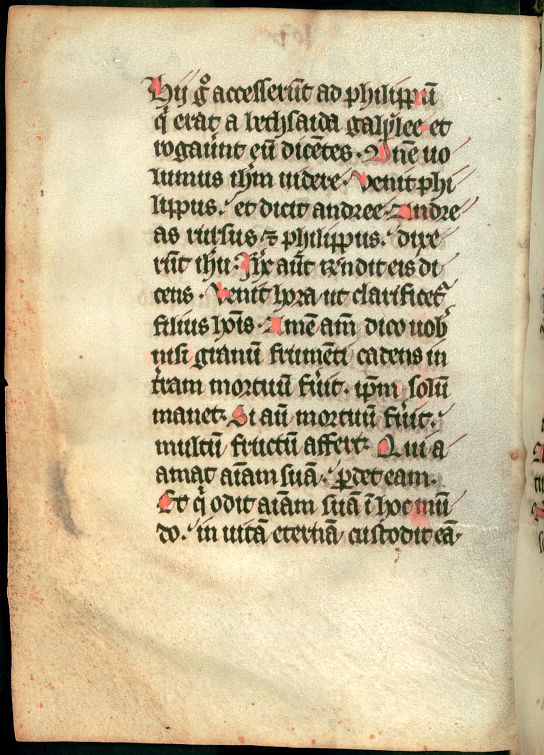 Hij g̊ accesserūt ad philippū
q̇ erat a bethsaida galylee et
rogaūnt eū dicētes. Dn̄e uo
lumus ihm̄ uidere. Venit phi
lippus. et dicit andree. Andre
as rursus ⁊ philippus. dixe
rūt ihu. Ihc aūt rn̄dit eis di
cens. Venit hora ut clarificet᷑
filius hoīs. Amē am̄ dico uob
nisi granū frumēti cadens in
tr̄am mortuū fūit. ip̄m solū
manet. Si aū mortuū fūit.
multū fructū affert. Qui a
amat aīam suā. ꝑdet eam.
Et q̇ odit aīam suā ī hoc mū
do. in uitā eternā custodit eā.